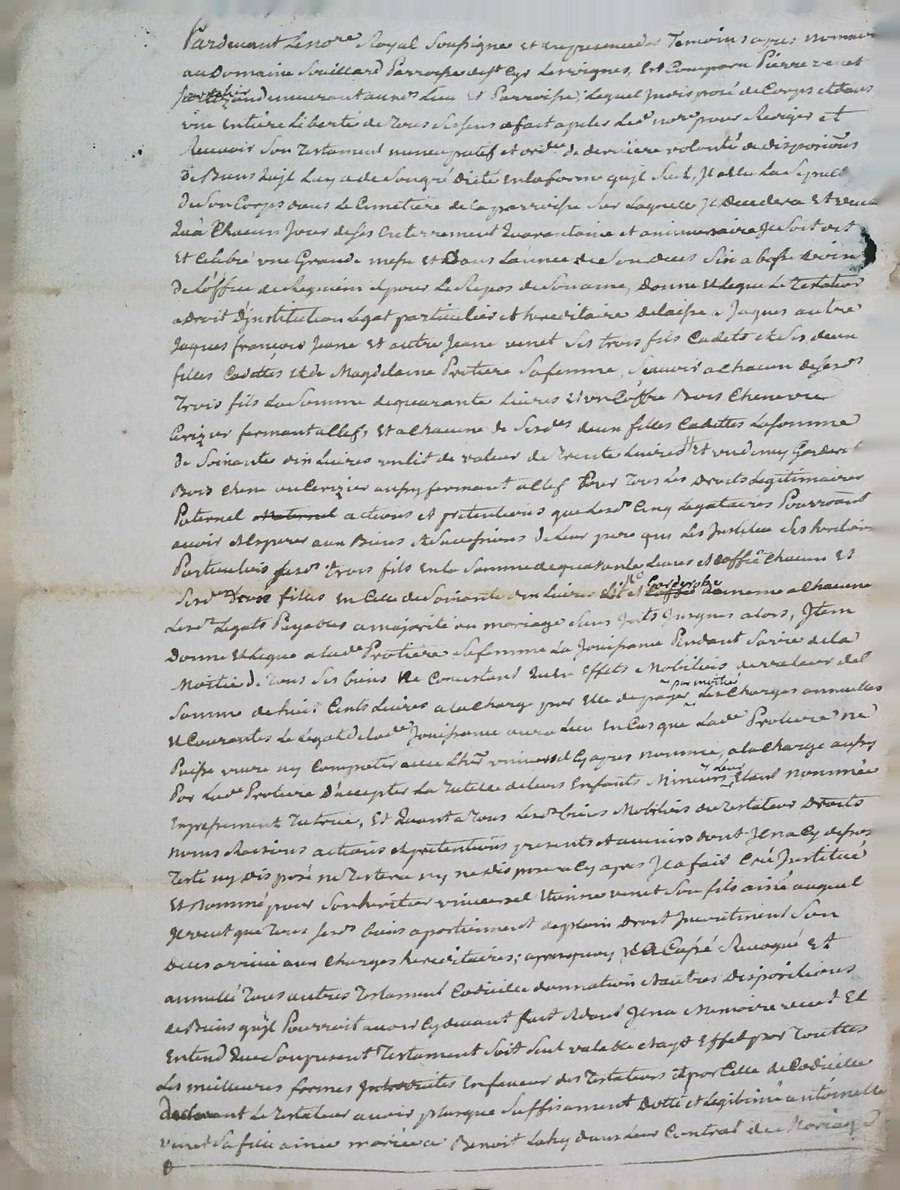 Pardevant Le no.re Royal Soussigné et en presence des Temoins apres nommes
au Domaine Souillard Parroisse de s.t Cyr Les vignes, Est Comparu Pierre venet
demeurant aud.t Lieu Et Parroisse, Lequel Indisposé de Corps et dans
une Entiere Liberté de Tous Ses sens a fait apeller Le d.t no.re pour Rediger et
Recevoir Son Testament noncupatif et ord.ce de derniere volonté de disposi.ons
de Biens quil Luy a de Son gré dicté En la forme quil Suit, Il a Elu La Sepult.
de Son Corps dans Le Cimetiere de la parroisse Sur Laquelle Il Decedera Et veut
Qu'a Chacun Jour de Ses Enterrement Quarantaine et anniversaire Il Soit dit
Et Celebré une Grande messe Et Dans L'année de Son deces Six a basse voix
De L'office de Requiem Pour Le Repos de Son ame, Donne Et Legue Le Testateur
a Droit d'institution Legat particulier et hereditaire delaisse a Jaques autre
Jaques françois Jeane Et autre Jeane venet Ses trois fils Cadets et Ses deux
filles Cadettes Et de Magdelaine Protiere Sa femme, Sçavoir a Chacun de Ses d.s
Trois fils La Somme de quarante Livres Et un Coffre Bois Chene ou
Cerizier fermant a Clefs Et a Chacune de Ses d.es deux filles Cadettes La Somme
de Soixante dix Livres un Lit de valeur de Trente Livres Et un demy Garderobe
Bois Chene ou Cerizier aussy fermant a Clef Pour Tous Les Droits Legitimaires
Paternel Maternel actions et pretentions que Les d.s Cinq Legataires Pourroient
avoir et Esperer aux Biens et Successions de Leur pere qui Les Institue Ses heritiers
Particuliers Ses d.s trois fils En la Somme de quarante Livres et Coffre Chacun Et
Ses d.es filles En Celle de Soixante dix Livres Lit et Garderobe a Chacune
Les d.s Legats Payables a majorité ou mariage Sans Int.ts Jusques alors, Item
Donne Et Legue a la d.e Protiere Sa femme La Jouissance Pendant Sa vie de la
Moitié de Tous Ses biens Effets Mobiliers de valeur de la
Somme de huit Cents Livres a la Charge par Elle de payer par moitié Les Charges annuelles
Et Courantes Le Legat de lad.e Jouissance aura Lieu En Cas que Lad.e Protiere ne
Puisse vivre ny Compatir avec L'her. universel Cy apres nommé, a la Charge aussy
Par Lad.e Protiere D'accepter La Tutelle de Leurs Enfants Mineurs Etant nommée
Expressement Tutrice, Et Quant a Tous Les d.s biens Mobiliers du Testateur Droits
noms Raisons actions et pretentions presents et avenirs dont Il n'a Cy dessus
Testé ny Disposé ne Testera ny ne Disposera Cy apres Il a fait Créé Institué
Et Nommé pour Son heritier universel Etienne venet Son fils ainé auquel
Il veut que Tous Ses d.s biens apartiennent de plein Droit Incontinent Son
Deces arrivé aux Charges hereditaires; apres quoy Il a Cassé Revoqué Et
annullé Tous autres Testament Codicille donnation et autres Dispositions
de Biens quil Pourroit avoir Cy devant fait dont Il n'a Memoire recente Et
Entend Que Son present Testament Soit Seul valable et ayt Effet par Touttes
Les meilleures formes Introduites En faveur des Testateurs et par Celle de Codicille
Declarant Le Testateur avoir plus que Suffisament Dotté et Legitimé antoinette
venet Sa fille ainée mariée a Benoit Lahy dans Leur Contrat de Mariage